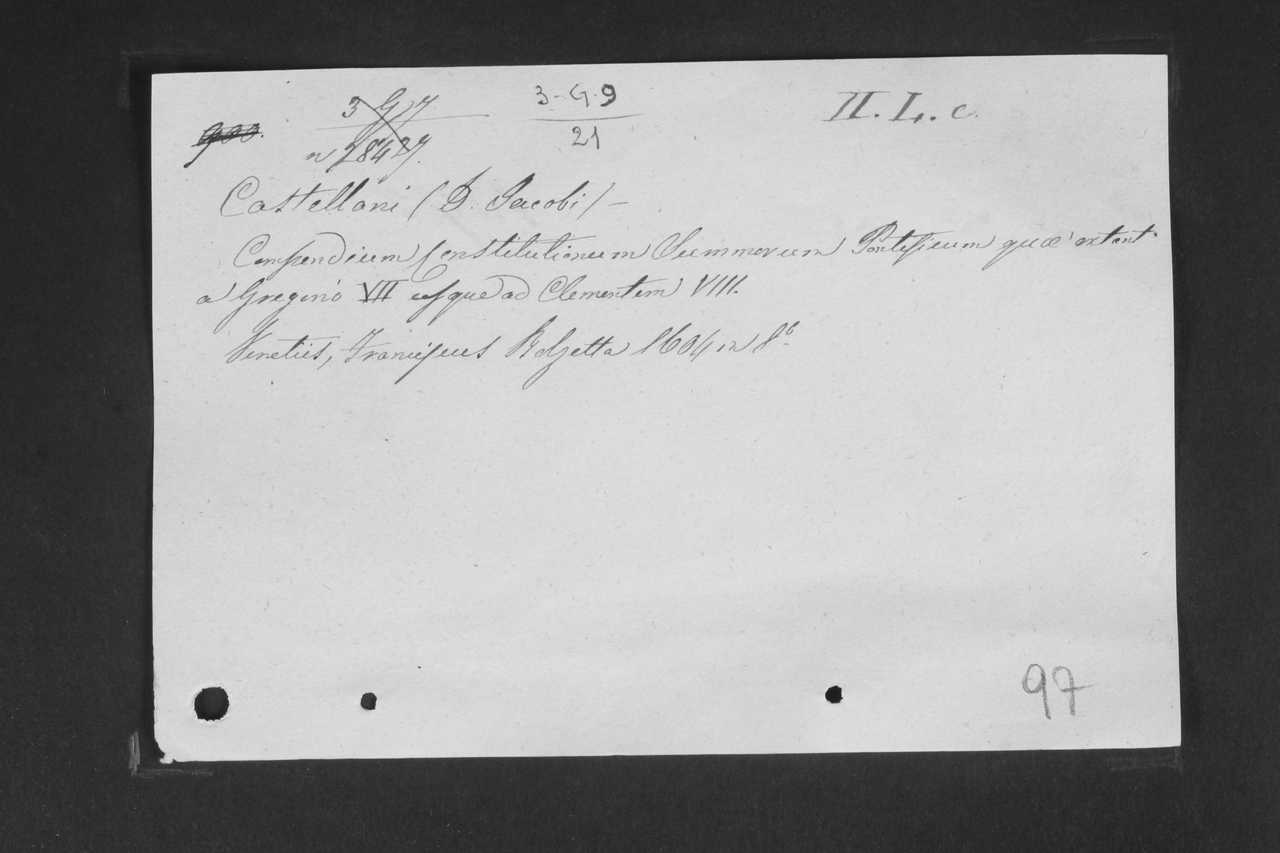 3-G-9 II. L. c.
21
Castellani (D. Jacobi) –
Compendium Constitutionum Summorum Pontificum quæ extant
a Gregorio VII usque ad Clementem VIII.
Venetiis, Franciscus Bolzetta 1604 in 8º.
97